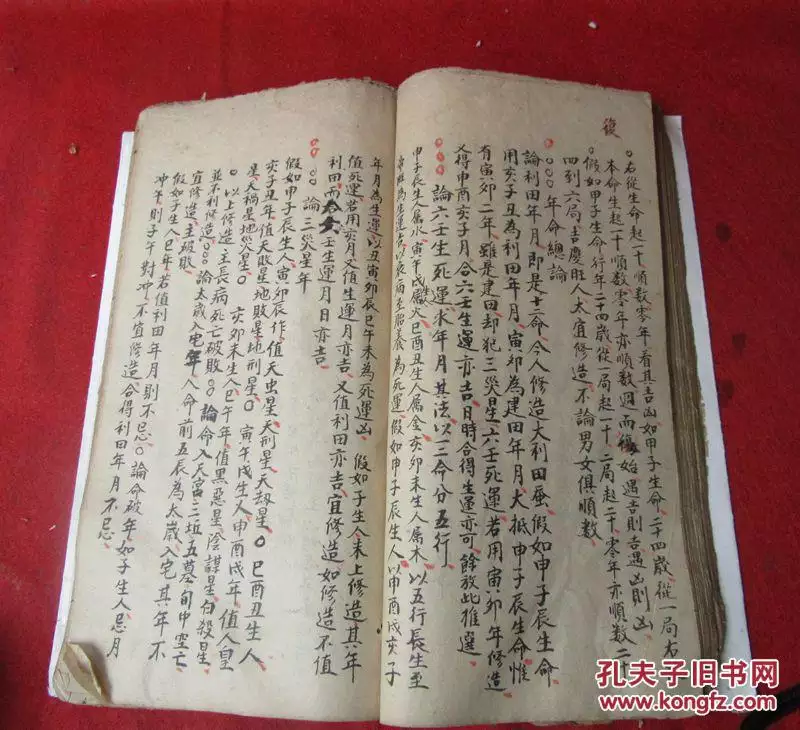 復
右從生命起一十順數零年看其吉凶如甲子生命二十四歲從一局右
本命生起一十順數零年亦順數週而復始遇吉則吉遇凶則凶
假如甲子生命行年二十四歲從一局起一十二局起二十零年亦順數二十
四到六局吉慶旺人大宜修造不論男女俱順數
年命總論
論利田年月即是十二命今人修造大利田蚕假如申子辰生命惟
用亥子丑為利田年月寅卯為建田年月大抵申子辰生命
有寅卯二年雖是建田却犯三災星六壬死運若用寅卯年修造
又得申酉亥子月合六壬生運亦吉日時合得生運亦可餘放此推選
論六壬生死運求年月其法以三命分五行
申子辰生人属水寅午戌属火巳酉丑生人属金亥卯未生人属木以五行長生至
帝旺為生運吉以衰病至胎養為死運假如申子辰生人以申酉戌亥子
年月為生運以丑寅卯辰巳午未為死運凶假如子生人未上修造其年
值死運若用亥月又值生運月亦吉又值利田亦吉宜修造如修造不值
利田而六壬生運月日亦吉
論三災星年
假如申子辰生人寅卯辰作值天虫星天刑星天刼星巳酉丑生人
亥子丑年值天敗星地敗星地刑星寅午戌生人申酉戌年值人皇
星天禍星地災星亥卯未生人巳午年值黑惡星陰謀星白殺星
以上修造主長病死亡破敗論命入天宮三坵五墓旬中空亡
並不利修造論太歲入宅年人命前五辰為太歲入宅其年不
宜修造主破敗
假如子生人巳年若值利田年月則不忌論命破年如子生人忌月
冲午則子午對冲不宜修造合得利田年月不忌
孔夫子旧书网
www.kongfz.com